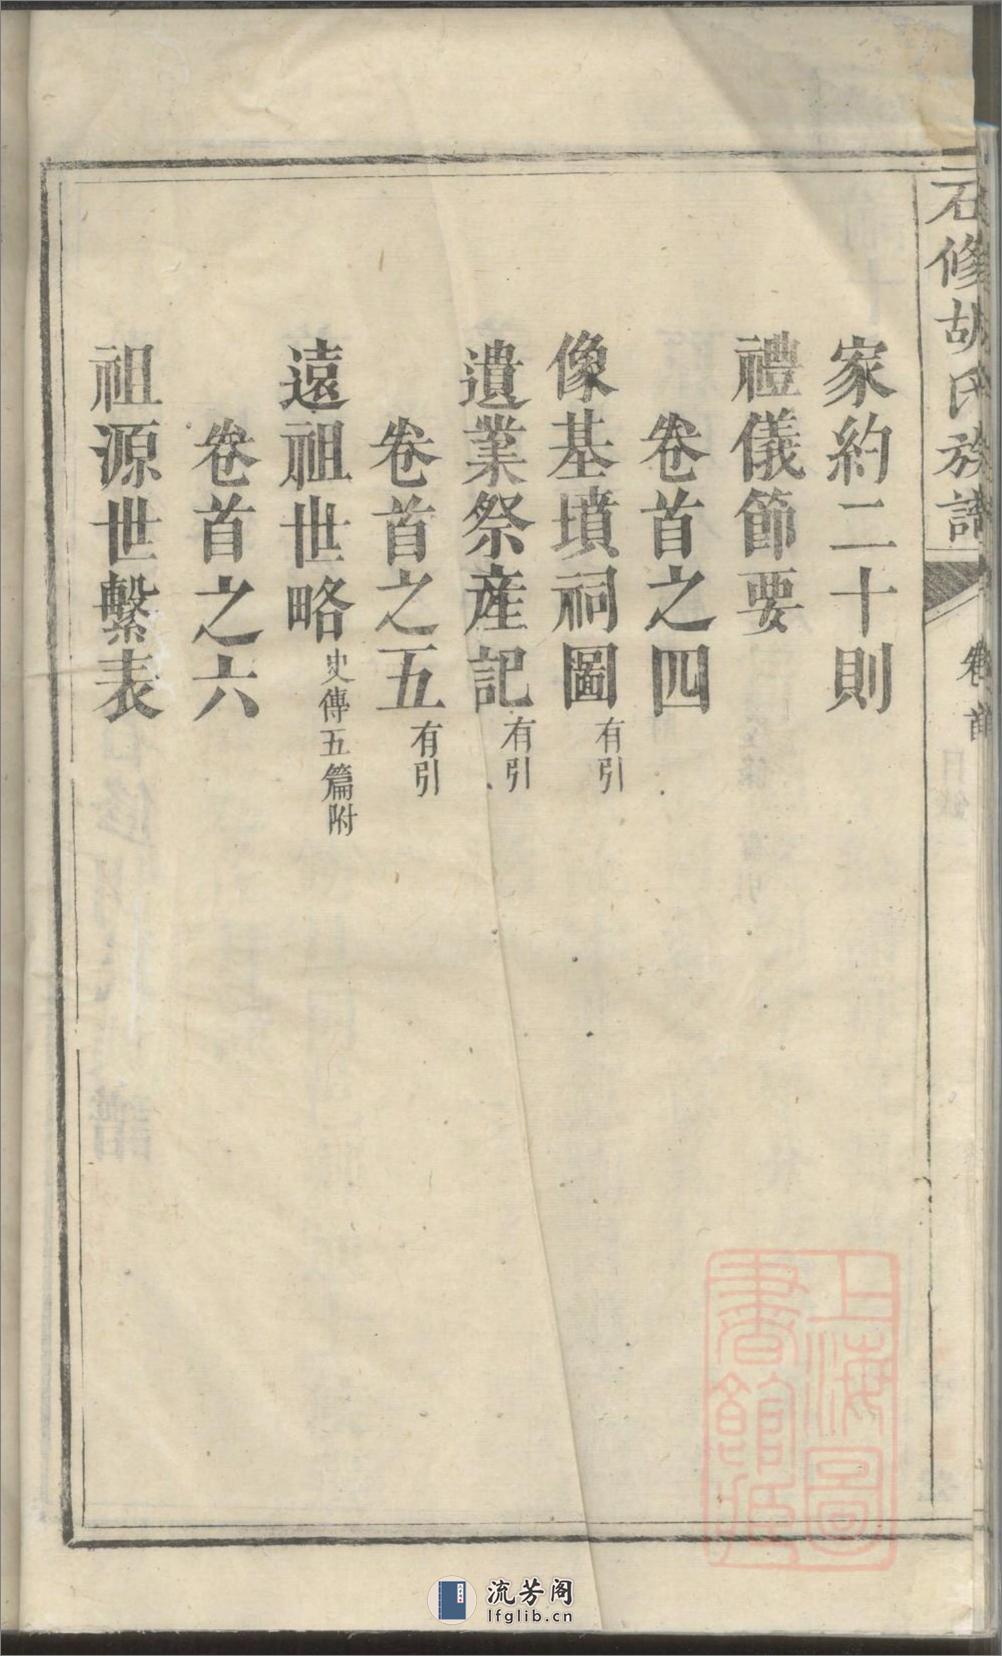 石修胡氏族譜
卷首
家約二十則
禮儀節要
卷首之四
像基墳祠圖有引
遺業祭產記有引
卷首之五有引
遠祖世略史傳五篇附
卷首之六
祖源世繫表
上海圖
書館藏
流芳阁
lfglib.cn